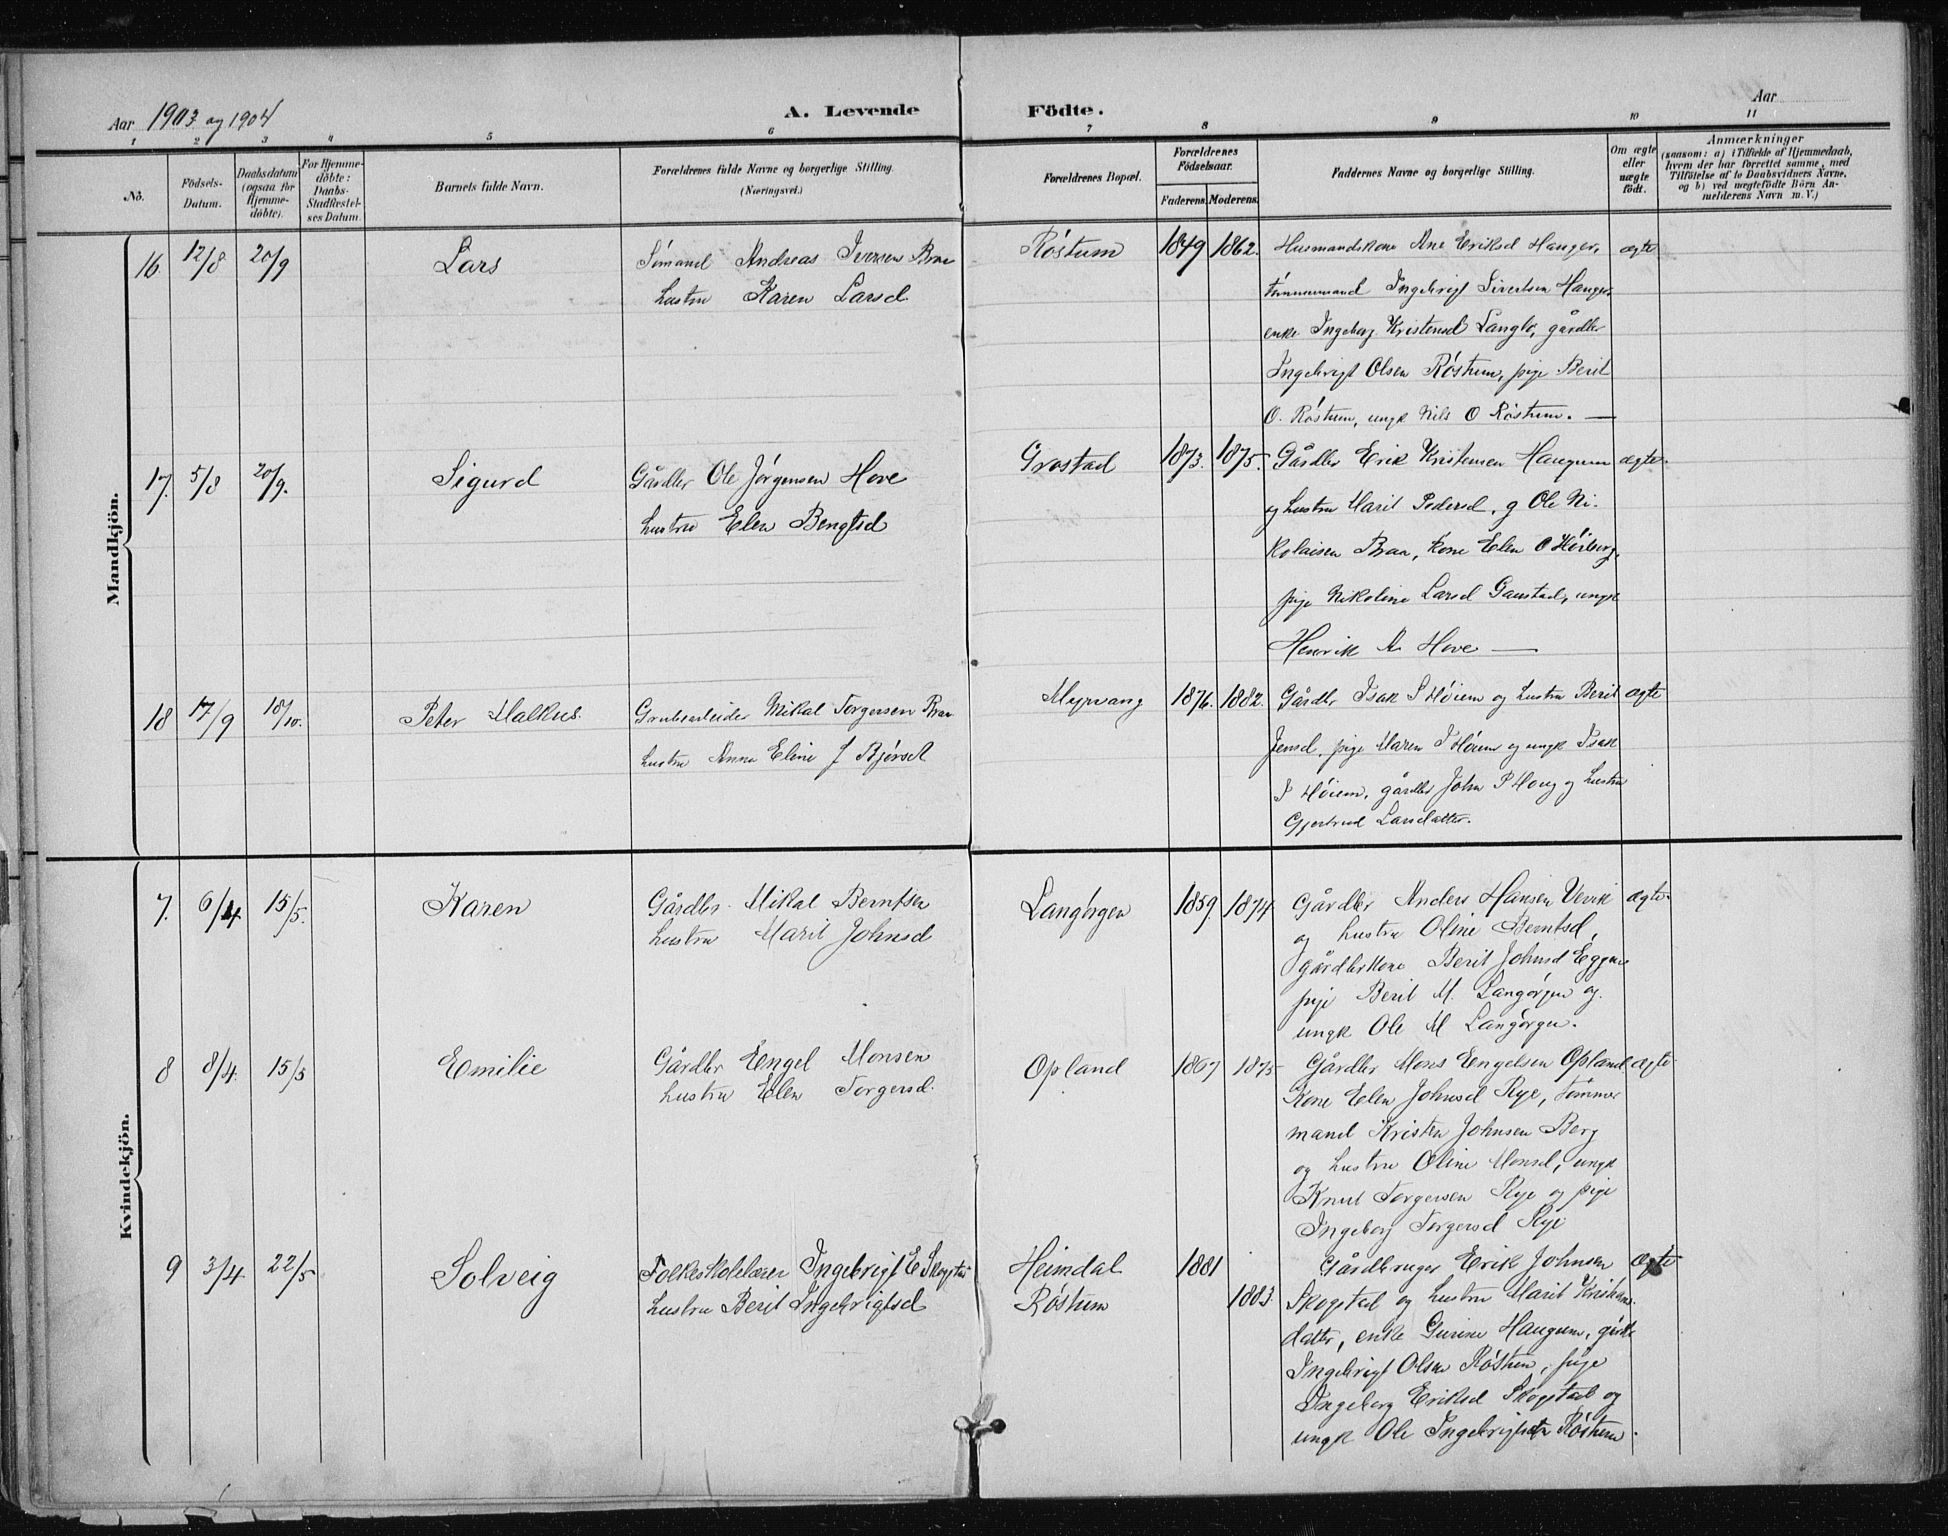 Aar 1903 og 1904
A. Levende Födte.
Aar
1 2 3 4 5 6 7 8 9 10 11
No.
Födsels-Datum.
Daabsdatum (ogsaa for Hjemme-döbte).
For Hjemme-döbte: Daabs-Stadfæstel-ses Datum.
Barnets fulde Navn.
Forældrenes fulde Navne og borgerlige Stilling. (Næringsvei.)
Forældrenes Bopæl.
Forældrenes Födselsaar.
Faderens. Moderens.
Faddernes Navne og borgerlige Stilling.
Om ægte eller uægte födt.
Anmærkninger
(saasom: a) i Tilfælde af Hjemmedaab, hvem der har forrettet samme, med Tilföielse af to Daabsvidners Navne, og b) ved uægtefödte Börn An-melderens Navn m. V.)
Mandkjön.
16. 12/8 20/9 Lars
Sömand Andreas Iversen Braa
hustru Karen Larsd
Röstum 1849 1862.
Husmandskone Ane Eriksd Hauger, ægte
tömmermand Ingebrigt Sivertsen Hauger
enke Ingeborg Kristensd Langlo, gårdbr
Ingebrigt Olsen Röstum, pige Berit
O. Röstum, ungk Nils O Röstum.
17. 5/8 20/9. Sigurd
Gårdbr Ole Jörgensen Hove
hustru Elen Bengtsd
Grostad 1873. 1875.
Gårdbr Erik Kristensen Haugum ægte.
og hustru Marit Pedersd, g Ole Ni-
kolaisen Braa, kone Elen O Hörberg,
pige Nikoline Larsd Gaustad, ungk
Henrik A Hove
18 17/9 18/10. Peter Malkus.
Grubearbeider Mikal Torgersen Braa
hustru Anna Eline J Bjørset
Myrvang 1876. 1882.
Gårdbr Isak I Höiem og hustru Berit ægte
Jensd, pige Maren I Höiem og ungk Isak
I Höiem, gårdbr John P Houg og hustru
Gjertrud Larsdatter.
Kvindekjön.
7. 6/4 15/5. Karen
Gårdbr. Mikal Berntsen
hustru Marit Johnsd
Langörgen 1859 1874
Gårdbr Anders Hansen Uvik ægte.
og hustru Oline Berntsd,
gårdbrkone Berit Johnsd Eggen
pige Berit M. Langörgen og
ungk Ole M Langörgen.
8 8/4. 15/5 Emilie
Gårdbr Engel Monsen
hustru Elen Torgersd.
Opland 1867 1875
Gårdbr Mons Engelsen Opland ægte
kone Elen Johnsd Rye, tömmer
mand Kristen Johnsen Berg
og hustru Oline Monsd, ungk
Knut Torgersen Rye og pige
Ingeborg Torgersd Rye
9 3/4 22/5 Solveig
Folkeskolelærer Ingebrigt E Skogstad
hustru Berit Ingebrigtsd
Heimdal 1881
Röstum 1883.
Gårdbruger Erik Johnsen ægte
Skogstad og hustru Marit Kristians
datter, enke Gurine Haugum, gårdbr
Ingebrigt Olsen Röstum, pige
Ingeborg Eriksd Skogstad og
ungk Ole Ingebrigtsen Röstum.